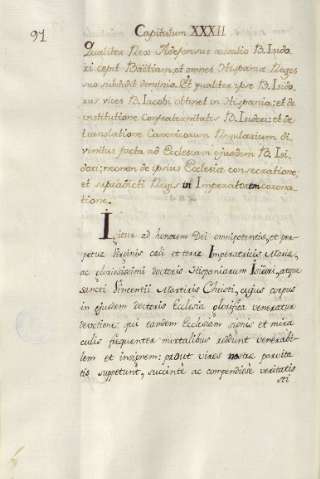 91
Capitulum XXXII.
Qualiter Rex Ildefonsus auxilio B. Isido
ri cepit Baëtiam, et omnes Hispaniæ Reges
suo subdidit dominio. Et qualiter ipse B. Isido
rus vices B. Iacobi obtinet in Hispania; et de
institutione Confraternitatis B. Isidori; et de
translatione Canonicorum Regularium di
vinitus facta ad Ecclesiam ejusdem B. Isi
dori; necnon de ipsius Ecclesiæ consecratione;
et supradicti Regis in Imperatorem corona
tione.
Igitur ad honorem Dei omnipotentis, et per
petuæ Virginis cæli et terræ Imperatricis Mariæ,
ac gloriosissimi doctoris Hispaniarum Isidori, atque
sancti Vincentii Martiris Christi, cujus corpus
in ejusdem doctoris Ecclesia gloriosa veneratur
devotione: qui tandem Ecclesiam signis et mira
culis frequenter mortalibus reddunt venerabi
lem et insignem: prout vires nostræ parvita
tis suppetunt, succinte ac compendiose veritatis
sti